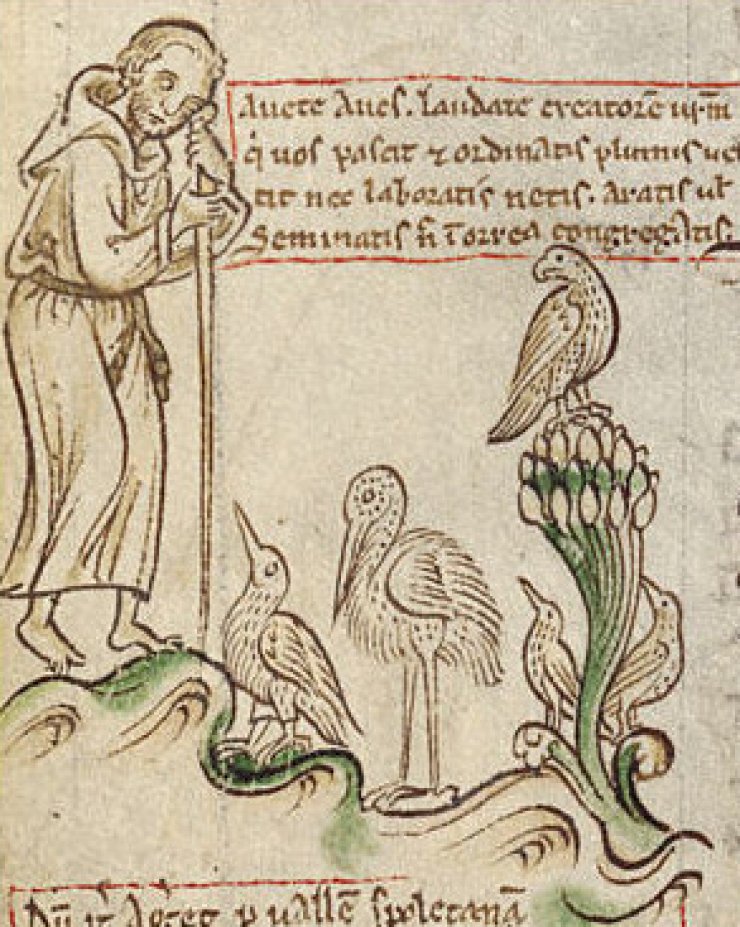 Auete Aues. laudate creatorē ur̄m
q̇ uos pascit ⁊ ordinatis plumis ues
tit nec laboratis netis. Aratis ul̄
Seminatis n̄ ī orrea congregatis.
Dū it̄ Ageret p uallē spoletanā